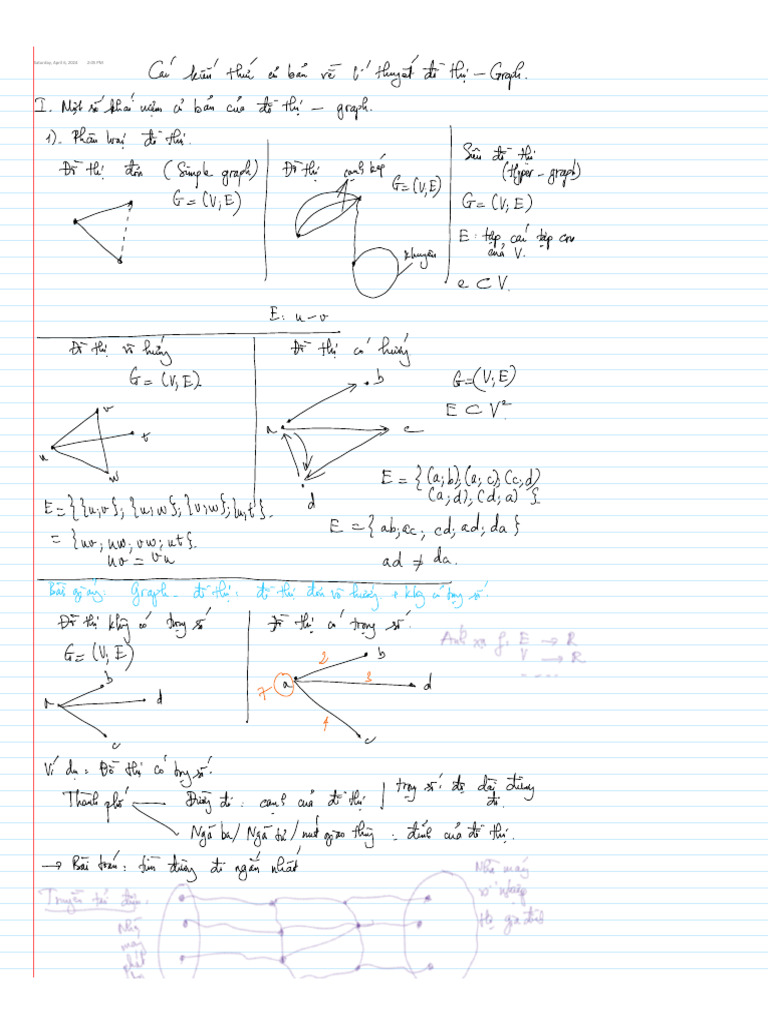 Saturday, April 6, 2024 4:05 PM
Các kiến thức cơ bản về lí thuyết đồ thị – Graph.
I. Một số khái niệm cơ bản của đồ thị – graph.
1). Phân loại đồ thị.
Đồ thị đơn (Simple graph)
G = (V; E)
Đồ thị cạnh kép
G = (V; E)
khuyên
Siêu đồ thị
(Hyper-graph)
G = (V; E)
E: tập các tập con
của V.
e ⊂ V.
E: u – v
Đồ thị vô hướng
G = (V; E).
u
v
t
w
E = {{u,v}; {u,w}; {v,w}; {u,t}}.
= {uv; uw; vw; ut}.
uv = vu
Đồ thị có hướng
a
b
c
d
G = (V; E)
E ⊂ V².
E = {(a;b), (a;c), (c,d)
(a;d), (d;a)}.
E = {ab; ac; cd; ad; da}
ad ≠ da.
Graph – đồ thị: đồ thị đơn vô hướng
Đồ thị không có trọng số
G = (V, E)
a
b
d
c
Đồ thị có trọng số.
2
3
4
7
a
b
d
c
Ánh xạ f: E → R
V → R
.....
Ví dụ: Đồ thị có trọng số.
Thành phố
Đường đi: cạnh của đồ thị
trọng số: độ dài đường
đi.
Ngã ba/ Ngã tư/ nút giao thông: đỉnh của đồ thị.
→ Bài toán: tìm đường đi ngắn nhất
Truyền tải điện:
Nhà
máy
phát
Nhà máy
xí nghiệp
Hộ gia đình